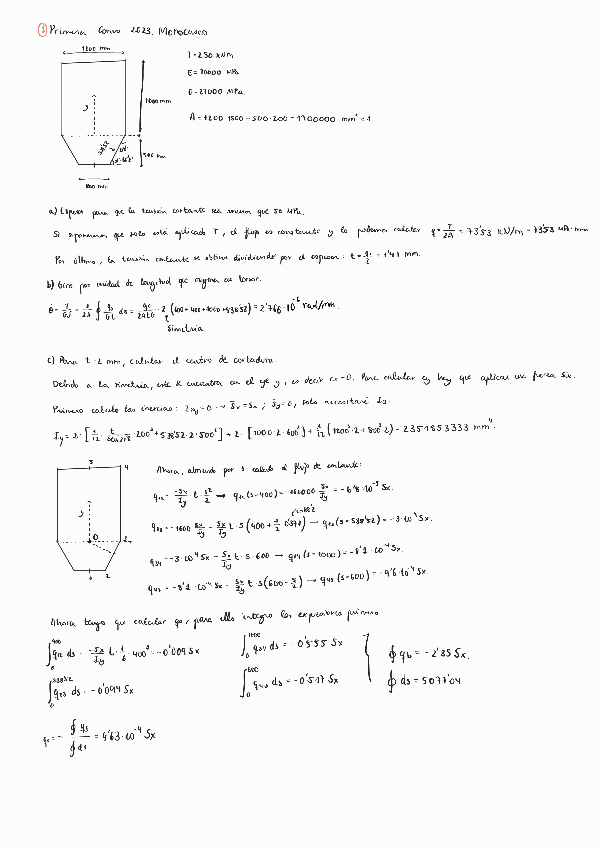 ① Primera Convo 2023. Monocasco
1200 mm
T = 250 kNm
E = 70000 MPa
G = 27000 MPa.
1000 mm
A = 1200·1500 - 500·200 = 1700000 mm²
500 mm
800 mm
a) Espesor para que la tensión cortante sea menor que 50 MPa.
Si suponemos que solo está aplicado T, el flujo es constante y lo podemos calcular q = T/2A = 73'53 kN/m = 73'53 MPa·mm
Por último, la tensión cortante se obtiene dividiendo por el espesor: t = q/τ = 1'47 mm.
b) Giro por unidad de longitud que origina ese torsor.
θ = T/GJ = 1/2A ∮ q/Gt ds = q/2AtG · 2 (400+600+1000+538'52) = 2'766·10⁻⁶ rad/mm.
Simetría
c) Para t = 2 mm, calcular el centro de cortadura.
Debido a la simetría, este se encuentra en el eje y, es decir cx = 0. Para calcular cy hay que aplicar una fuerza Sx.
Primero calculo las inercias: Ixy = 0 → S̄x = Sx ; S̄y = 0, solo necesitaré Iy.
Iy = 2·[1/12 · · 200³ + 538'52·2·500²] + 2·[1000·2·600²] + 1/12 (1200³·2 + 800³·2) = 2351853333 mm⁴
3
4
y
0
2
1
2
Ahora, abriendo por 1 calculo el flujo de cortante:
q12 = -Sx/Iy · t · s²/2 → q12(s=400) = -160000 Sx/Iy = -6'8·10⁻⁵ Sx.
q23 = -160000 Sx/Iy - Sx/Iy t·s(400 + s/2 ) → q23(s=538'52) = -3·10⁻⁴ Sx.
q34 = -3·10⁻⁴ Sx - Sx/Iy t·s·600 → q34(s=1000) = -8'1·10⁻⁴ Sx.
q45 = -8'1·10⁻⁴ Sx - Sx/Iy t·s(600 - s/2) → q45(s=600) = -9'6·10⁻⁴ Sx.
Ahora tengo que calcular q0, para ello integro las expresiones primero:
∫₀⁴⁰⁰ q12 ds = -Sx/Iy t·1/6·400³ = -0'009 Sx
∫₀¹⁰⁰⁰ q34 ds = -0'555 Sx
∮ qb = -2'35 Sx.
∫₀⁵³⁸'⁵² q23 ds = -0'094 Sx
∫₀⁶⁰⁰ q45 ds = -0'517 Sx
∮ ds = 5077'04
q0 = - ∮ qb / ∮ ds = 4'63·10⁻⁴ Sx